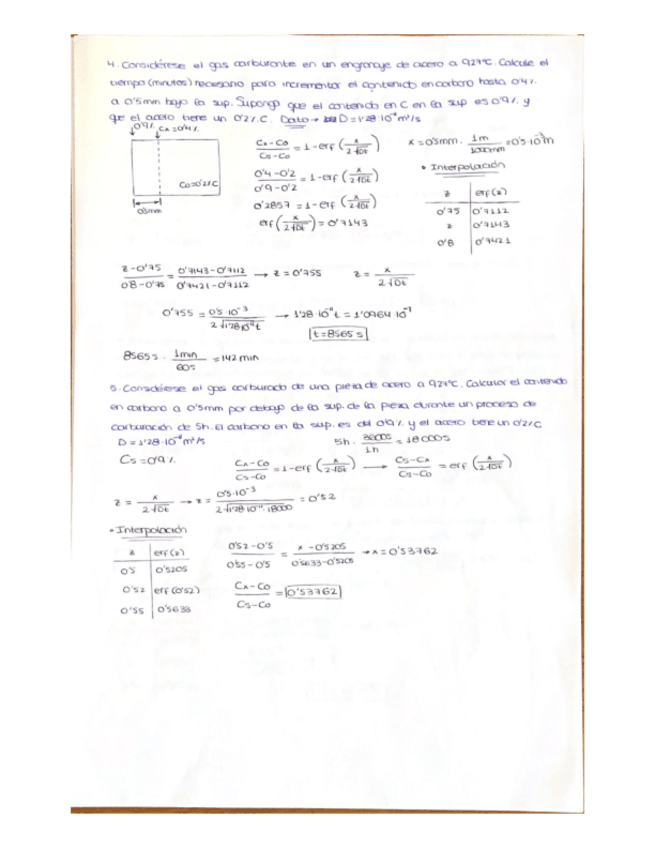 4. Considérese el gas carburante en un engranaje de acero a 927ºC. Calcule el
tiempo (minutos) necesario para incrementar el contenido en carbono hasta 0'4%
a 0'5mm bajo la sup. Suponga que el contenido en C en la sup es 0'9% y
que el acero tiene un 0'2% C. Dato → D = 1'28·10⁻¹¹ m²/s
0'9% Cx = 0'4%
C₀ = 0'2%C
0'5mm
Cx - C₀ / Cs - C₀ = 1 - erf (x / 2√Dt)
0'4 - 0'2 / 0'9 - 0'2 = 1 - erf (x / 2√Dt)
0'2857 = 1 - erf (x / 2√Dt)
erf (x / 2√Dt) = 0'7143
x = 0'5mm · 1m / 1000mm = 0'5·10⁻³m
• Interpolación
z | erf(z)
0'75 | 0'7112
z | 0'7143
0'8 | 0'7421
z - 0'75 / 0'8 - 0'75 = 0'7143 - 0'7112 / 0'7421 - 0'7112 → z = 0'755 z = x / 2√Dt
0'755 = 0'5·10⁻³ / 2√1'28·10⁻¹¹t → 1'28·10⁻¹¹t = 1'0964·10⁻⁷
t = 8565 s
8565 s · 1min / 60s = 142 min
5. Considérese el gas carburado de una pieza de acero a 927ºC. Calcular el contenido
en carbono a 0'5mm por debajo de la sup. de la pieza durante un proceso de
carburación de 5h. El carbono en la sup. es del 0'9% y el acero tiene un 0'2%C
D = 1'28·10⁻¹¹ m²/s
5h · 3600s / 1h = 18000s
Cs = 0'9%
Cx - C₀ / Cs - C₀ = 1 - erf (x / 2√Dt) → Cs - Cx / Cs - C₀ = erf (x / 2√Dt)
z = x / 2√Dt → z = 0'5·10⁻³ / 2√1'28·10⁻¹¹·18000 = 0'52
• Interpolación
z | erf(z)
0'5 | 0'5205
0'52 | erf(0'52)
0'55 | 0'5633
0'52 - 0'5 / 0'55 - 0'5 = x - 0'5205 / 0'5633 - 0'5205 → x = 0'53762
Cx - C₀ / Cs - C₀ = 0'53762